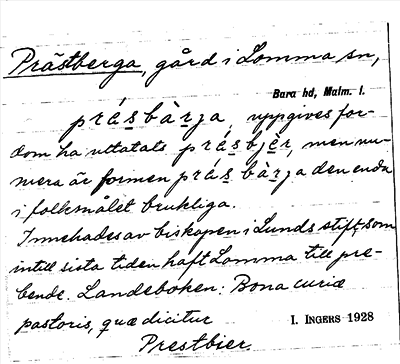 Prästberga, gård i Lomma sn,
Bara hd, Malm. l.
prásbàrja, uppgives for-
dom ha uttalats prásbjèr, men nu-
mera är formen prásbàrja den enda
i folkmålet brukliga.
Innehades av biskopen i Lunds stift, som
intill sista tiden haft Lomma till pre-
bende. Landeboken: Bona curiæ
pastoris, quæ dicitur
Prestbier.
I. INGERS 1928